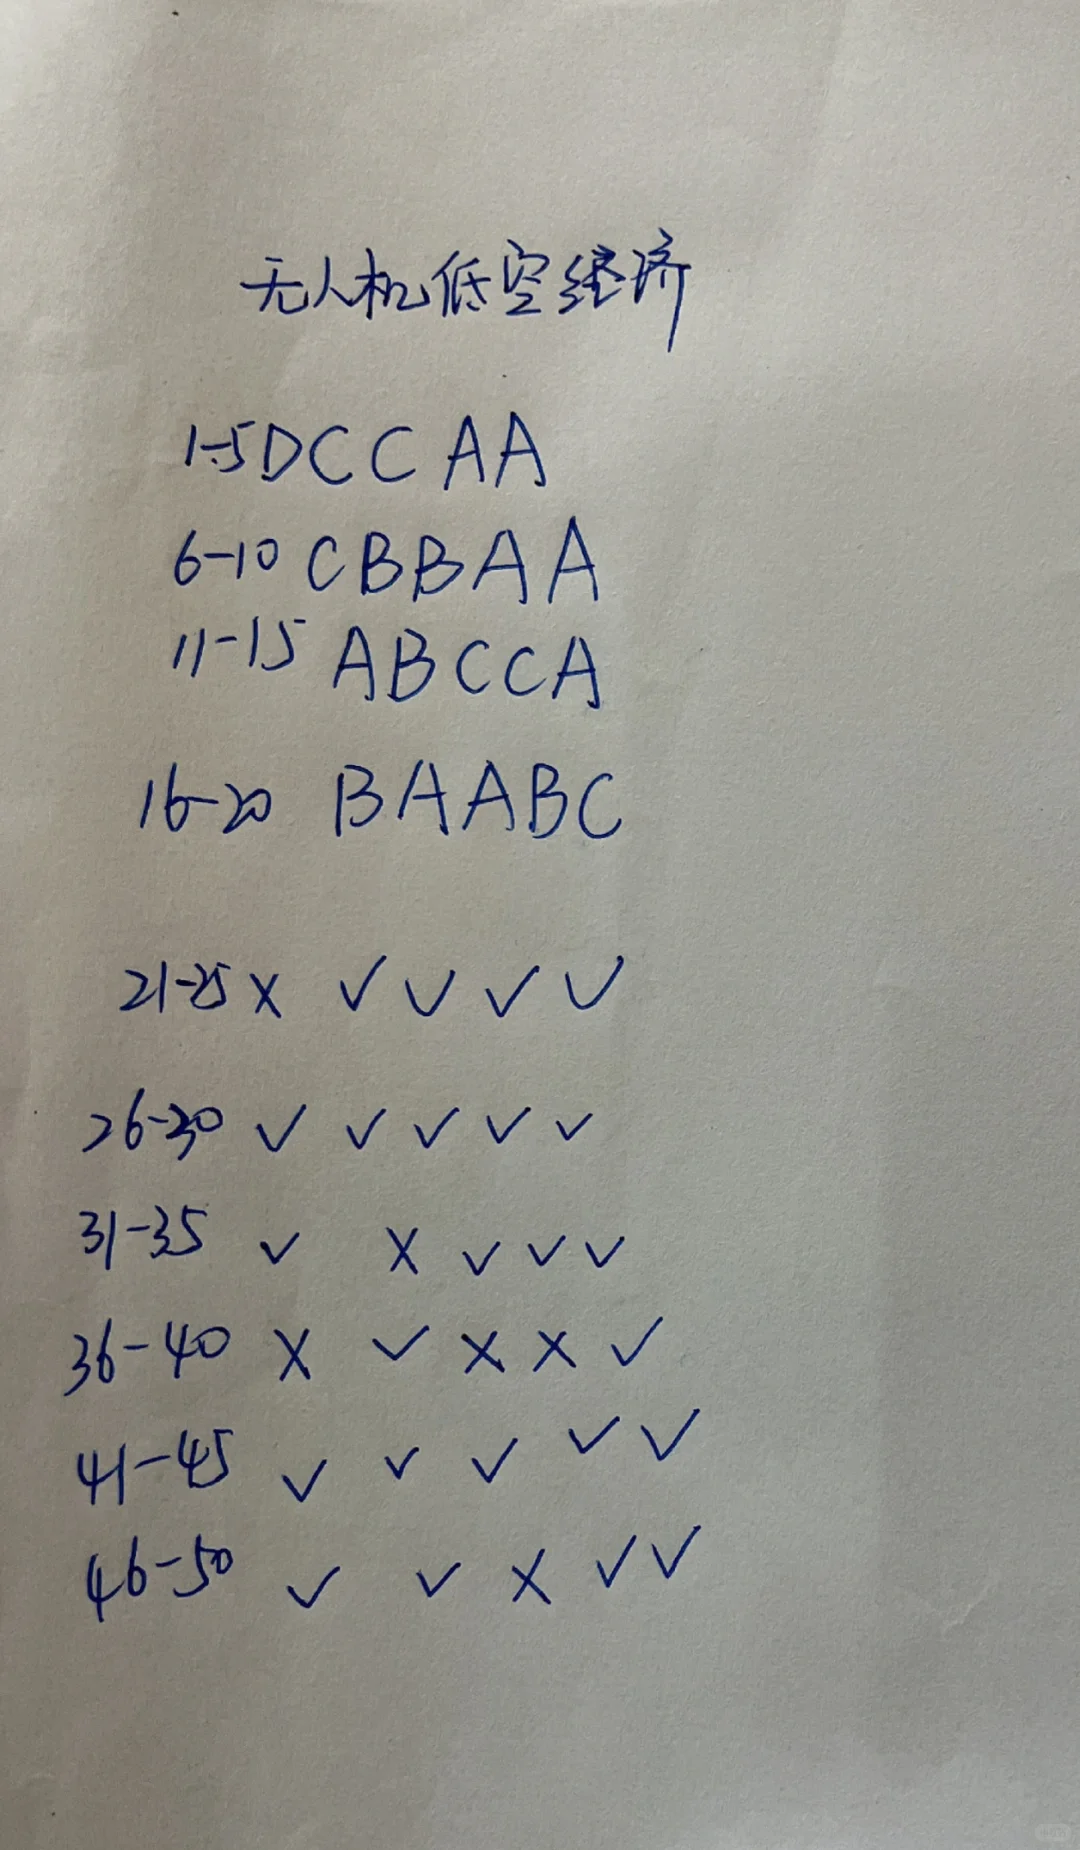 无人机低空经济
1-5 D C C A A
6-10 C B B A A
11-15 A B C C A
16-20 B A A B C
21-25 × ✓ ✓ ✓ ✓
26-30 ✓ ✓ ✓ ✓ ✓
31-35 ✓ × ✓ ✓ ✓
36-40 × ✓ × × ✓
41-45 ✓ ✓ ✓ ✓ ✓
46-50 ✓ ✓ × ✓ ✓